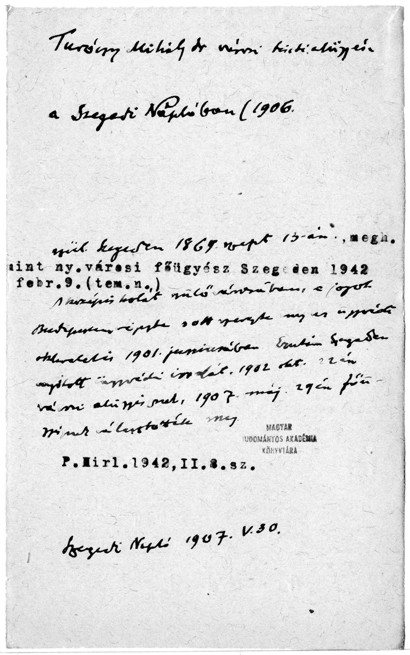 Turóczy Mihály dr városi tiszti alügyész
a Szegedi Naplóban (1906.
szül. Szegeden 1869 szept 13-án., megh.
mint ny.városi főügyész Szegeden 1942
febr.9.(tem.n.)
középiskoláit szülővárosában, a jogot
Budapesten végezte sott szerezte meg az ügyvédi
oklevelet is 1901. juniusában Ezután Szegeden
nyitott ügyvédi irodát. 1902 okt. 22én
városi alügyésznek, 1907. máj. 29én főü-
választották meg
MAGYAR
TUDOMÁNYOS AKADÉMIA
KÖNYVTÁRA
P.Hirl.1942,II.8.sz.
Szegedi Napló 1907. V.30.